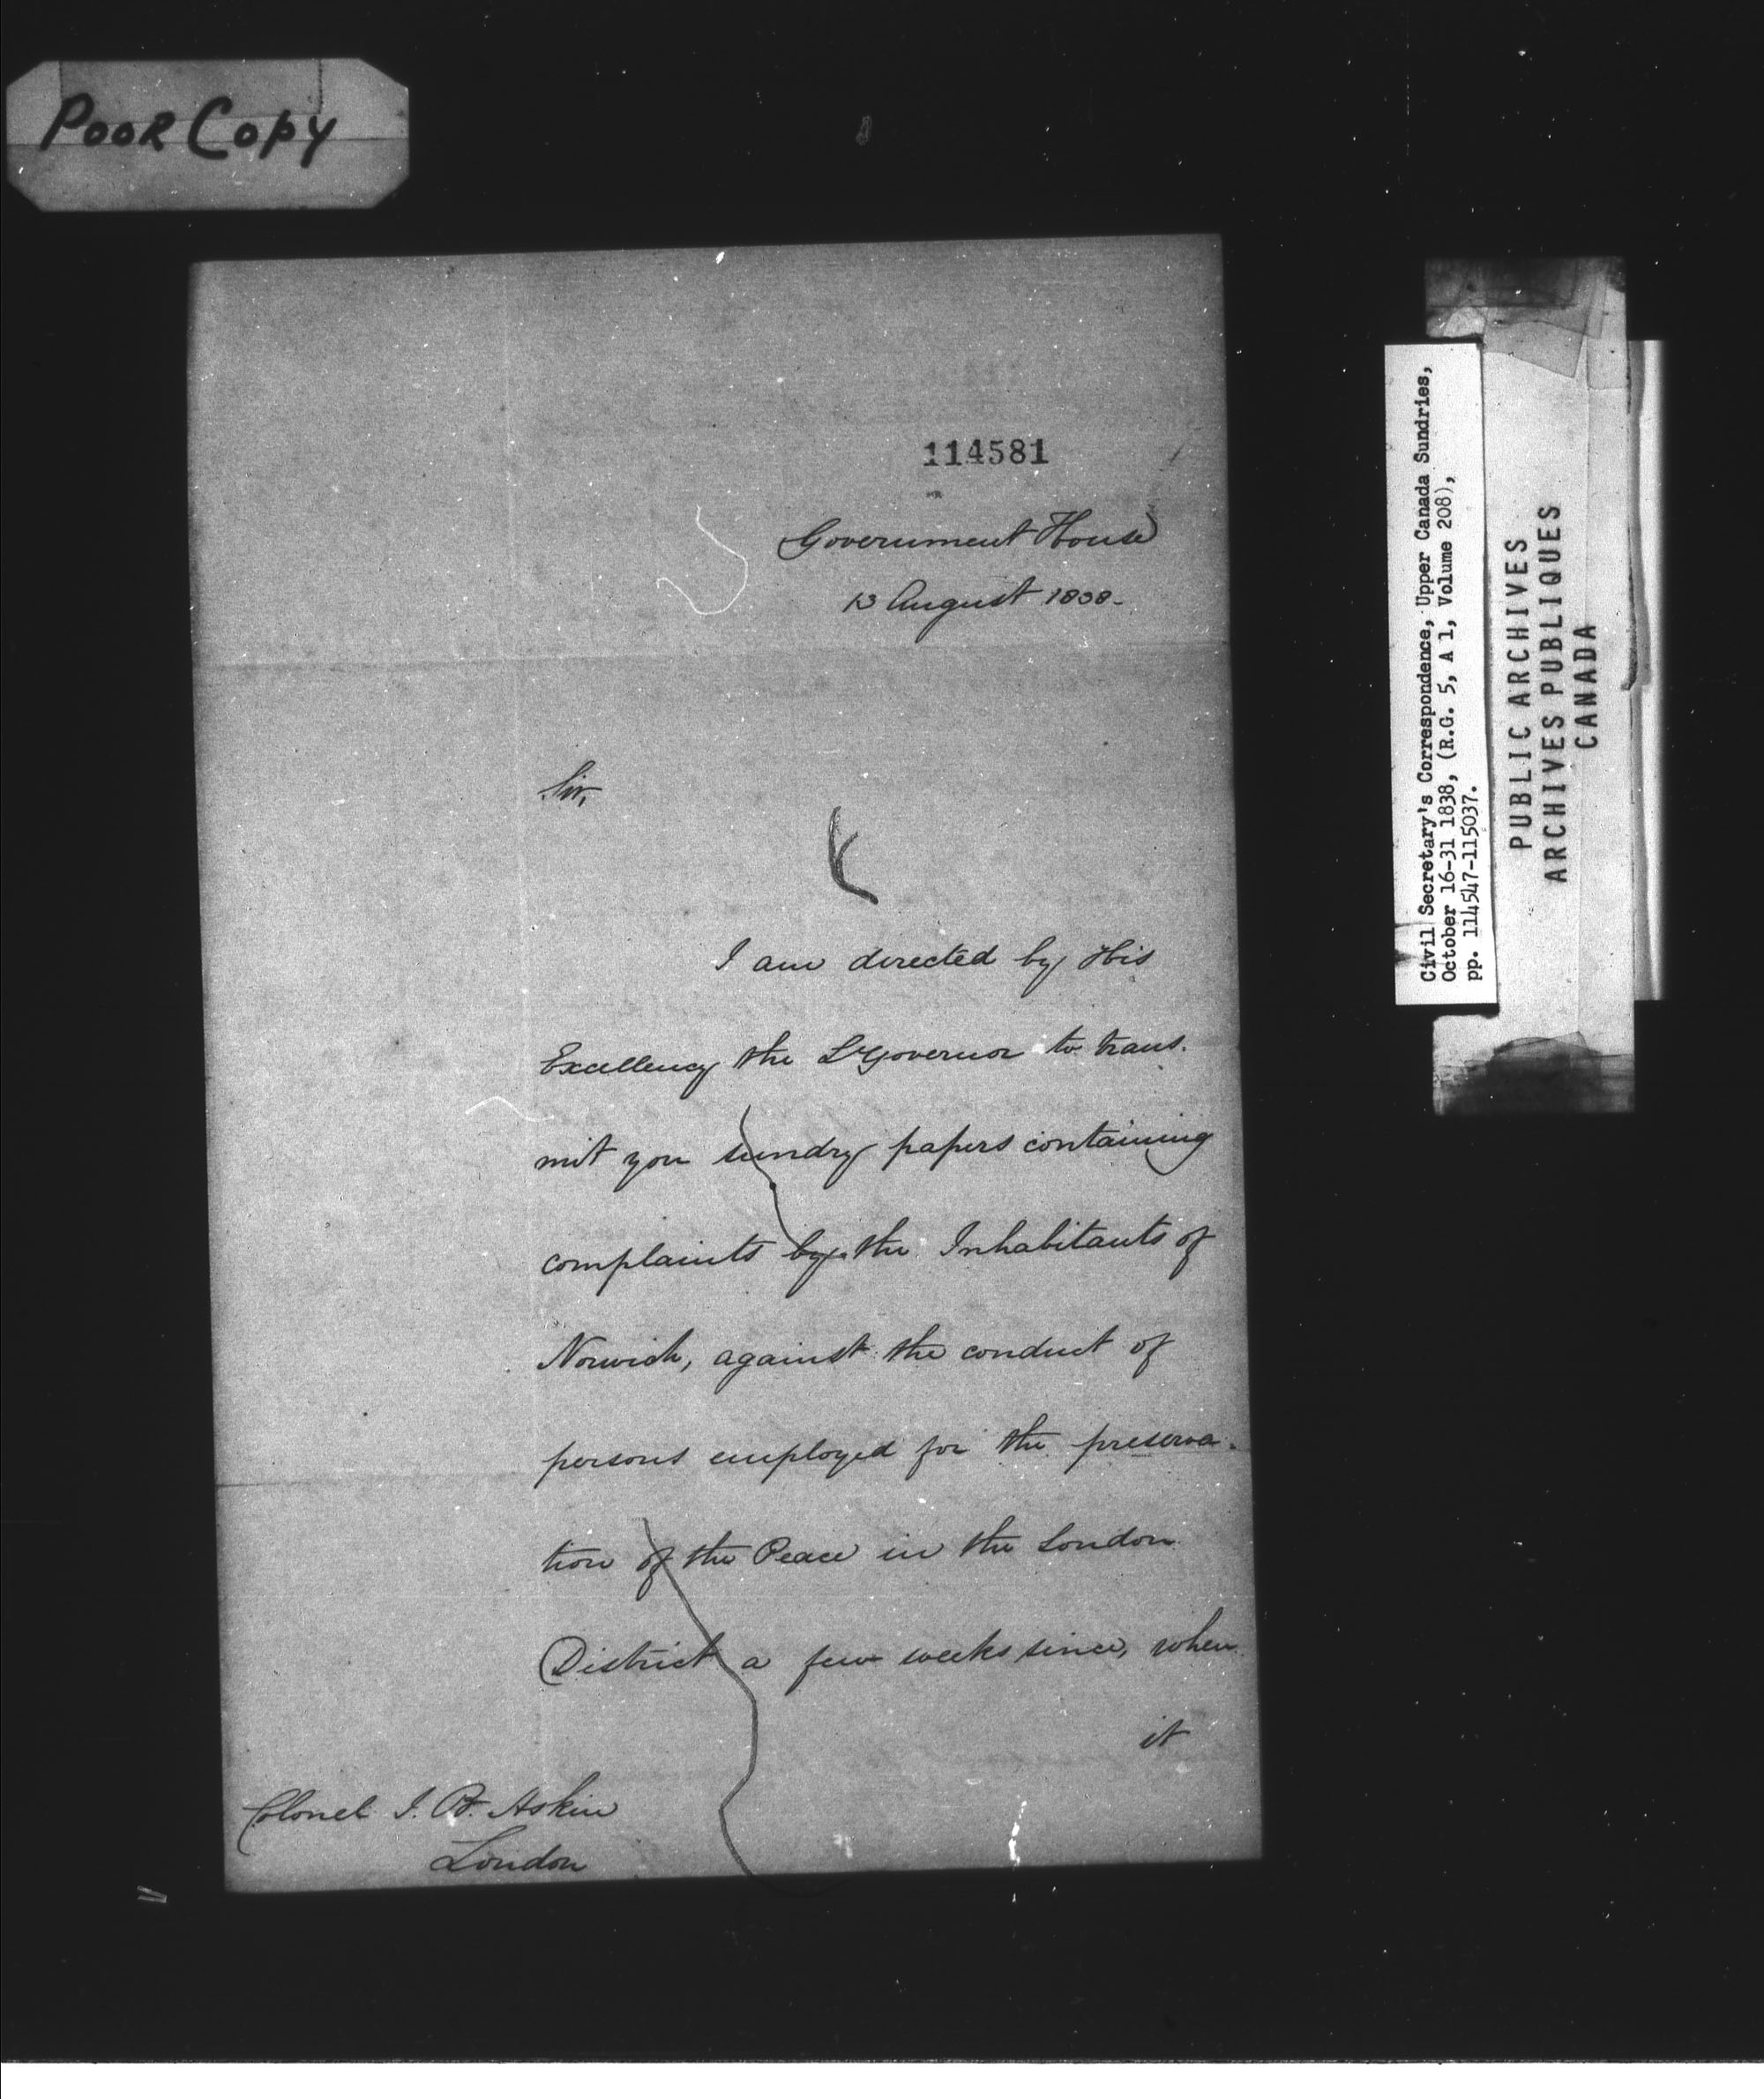 POOR COPY
114581
Government House
13 August 1838-
Sir,
I am directed by His
Excellency the Lt Governor to trans-
mit you sundry papers containing
complaints by the Inhabitants of
Norwich, against the conduct of
persons employed for the preserva-
tion of the Peace in the London
District a few weeks since, when
it
Colonel J. B. Askin
London
Civil Secretary's Correspondence, Upper Canada Sundries,
October 16-31 1838, (R.G. 5, A 1, Volume 208),
pp. 114547-115037.
PUBLIC ARCHIVES
ARCHIVES PUBLIQUES
CANADA